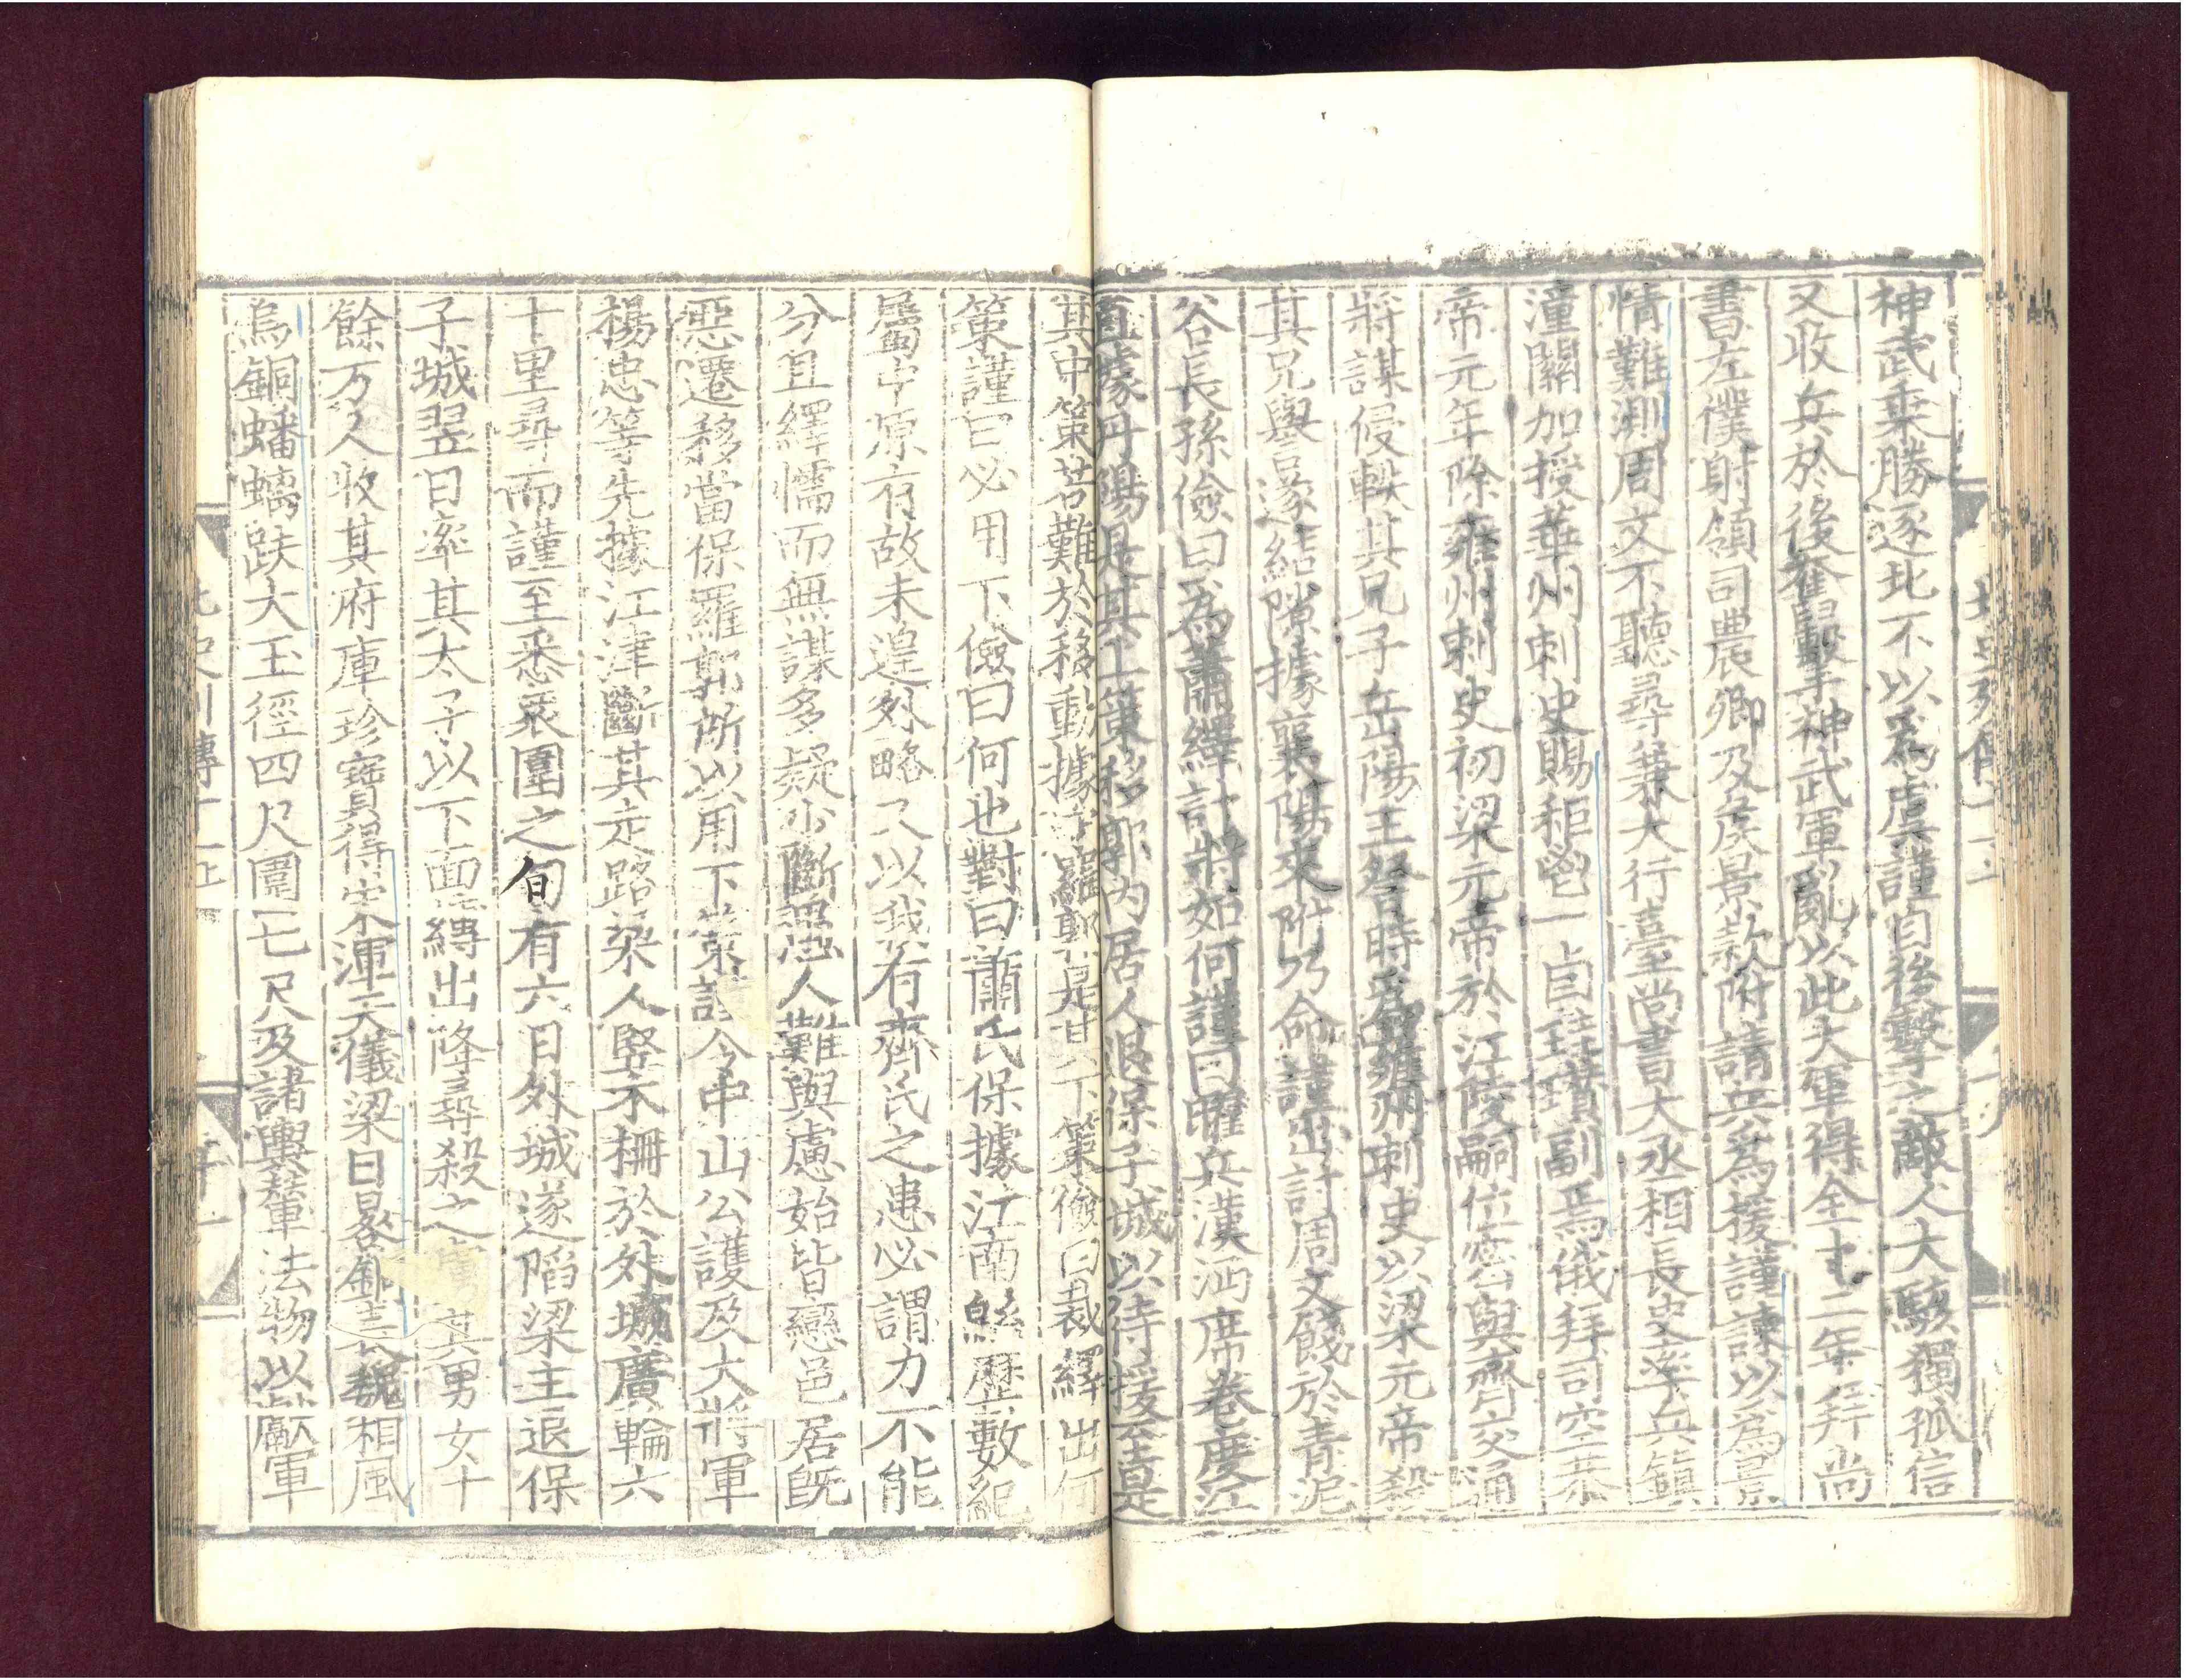 神武乘勝逐北不以爲虞謹自後擊之敵人大駭獨孤信
又收兵於後奮擊神武軍亂以此大軍得全十二年拜尚
書左僕射領司農卿及侯景款附請兵爲援謹諫以爲景
情難測周文不聽尋兼大行臺尚書大丞相長史率兵鎮
潼關加授華州刺史賜秬鬯一卣珪瓚副焉俄拜司空恭
帝元年除雍州刺史初梁元帝於江陵嗣位密與齊交通
將謀侵軼其兄子岳陽王詧時爲雍州刺史以梁元帝殺
其兄譽遂結隙據襄陽來附乃命謹出討周文餞於青泥
谷長孫儉曰爲蕭繹計將如何謹曰曜兵漢沔席卷度江
直據丹陽是其上策移郭內居人退保子城以待援至是
其中策若難於移動據守羅郭是其下策儉曰裁繹出何
策謹曰必用下儉曰何也對曰蕭氏保據江南緜歷數紀
屬中原有故未遑外略又以我有齊氏之患必謂力不能
分且繹懦而無謀多疑少斷愚人難與慮始皆戀邑居旣
惡遷移當保羅郭所以用下策謹令中山公護及大將軍
楊忠等先據江津斷其走路梁人竪木柵於外城廣輪六
十里尋而謹至悉衆圍之旬有六日外城遂陷梁主退保
子城翌日率其太子以下面縛出降尋殺之虜其男女十
餘万人收其府庫珍寶得宋渾天儀梁日晷銅表魏相風
烏銅蟠螭趺大玉徑四尺圍七尺及諸輿輦法物以獻軍